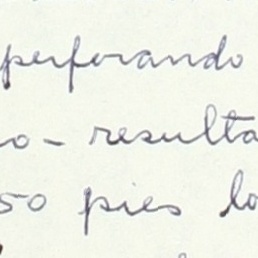 perforando
o- resulta
50 pies lo